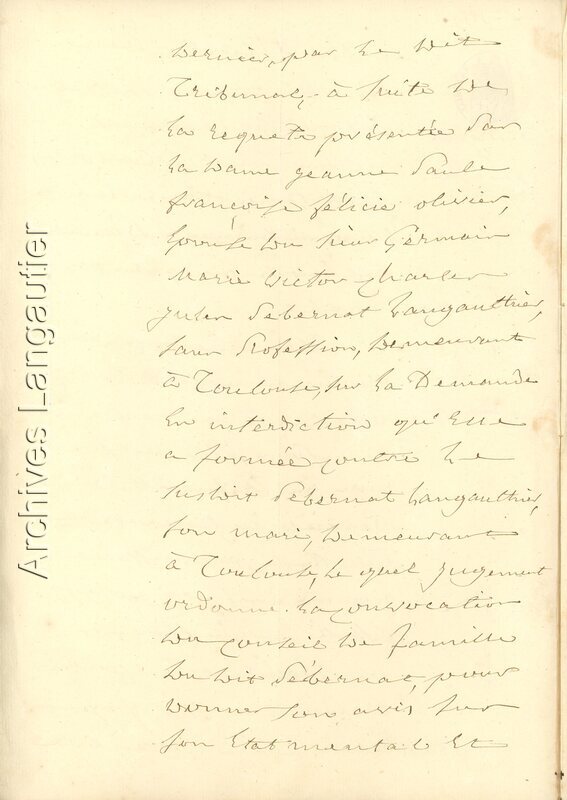 dernier, par le dit
Tribunal, à suite de
la requete présentée par
la dame jeanne paule
françoise félicie olivier,
épouse du sieur Germain
Marie victor charles
jules debernat Langauthier,
sans profession, demeurant
à Toulouse, sur la Demande
En interdiction qu'Elle
a formée contre le
susdit debernat Langauthier,
son mari, demeurant
à Toulouse, le quel jugement
ordonne la convocation
du conseil de famille
du dit débernat, pour
donner son avis sur
son Etat mental et
Archives Langautier